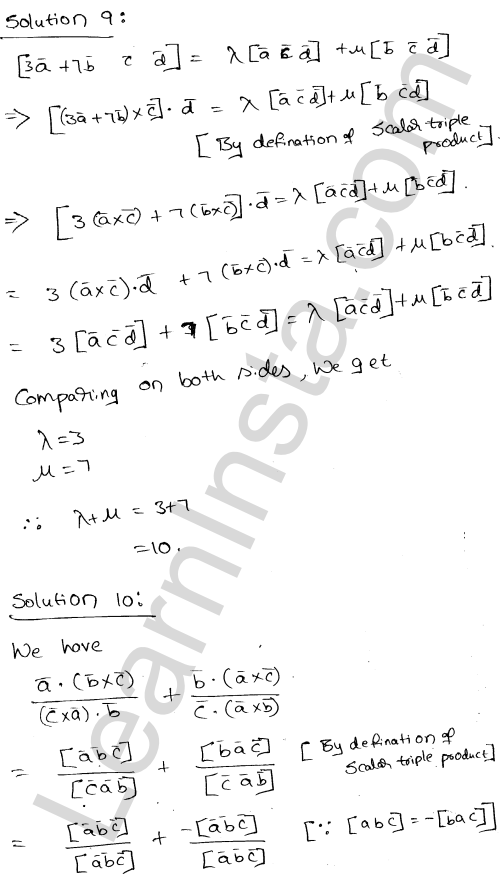 Solution 9:
[3ā+7b̄ c̄ d̄] = λ[ā c̄ d̄] + μ[b̄ c̄ d̄]
⇒ [(3ā+7b̄)×c̄]·d̄ = λ[ā c̄ d̄]+μ[b̄ c̄d̄]
[By defination of Scalar triple product].
⇒ [3(ā×c̄) + 7(b̄×c̄)]·d̄ = λ[āc̄d̄]+μ[b̄c̄d̄].
= 3(ā×c̄)·d̄ + 7(b̄×c̄)·d̄ = λ[āc̄d̄] + μ[b̄c̄d̄].
= 3[ā c̄ d̄] + 7[b̄ c̄ d̄] = λ[ā c̄ d̄]+μ[b̄ c̄ d̄]
Comparing on both sides, we get
λ=3
μ=7
∴ λ+μ = 3+7
=10.
Solution 10:
We have
ā·(b̄×c̄)/(c̄×ā)·b̄ + b̄·(ā×c̄)/c̄·(ā×b̄)
= [āb̄c̄]/[c̄āb̄] + [b̄āc̄]/[c̄ āb̄] [By defination of Scalar triple product]
= [āb̄c̄]/[āb̄c̄] + -[āb̄c̄]/[āb̄c̄] [∵ [abc̄] = -[bac̄]]
LearnInsta.com